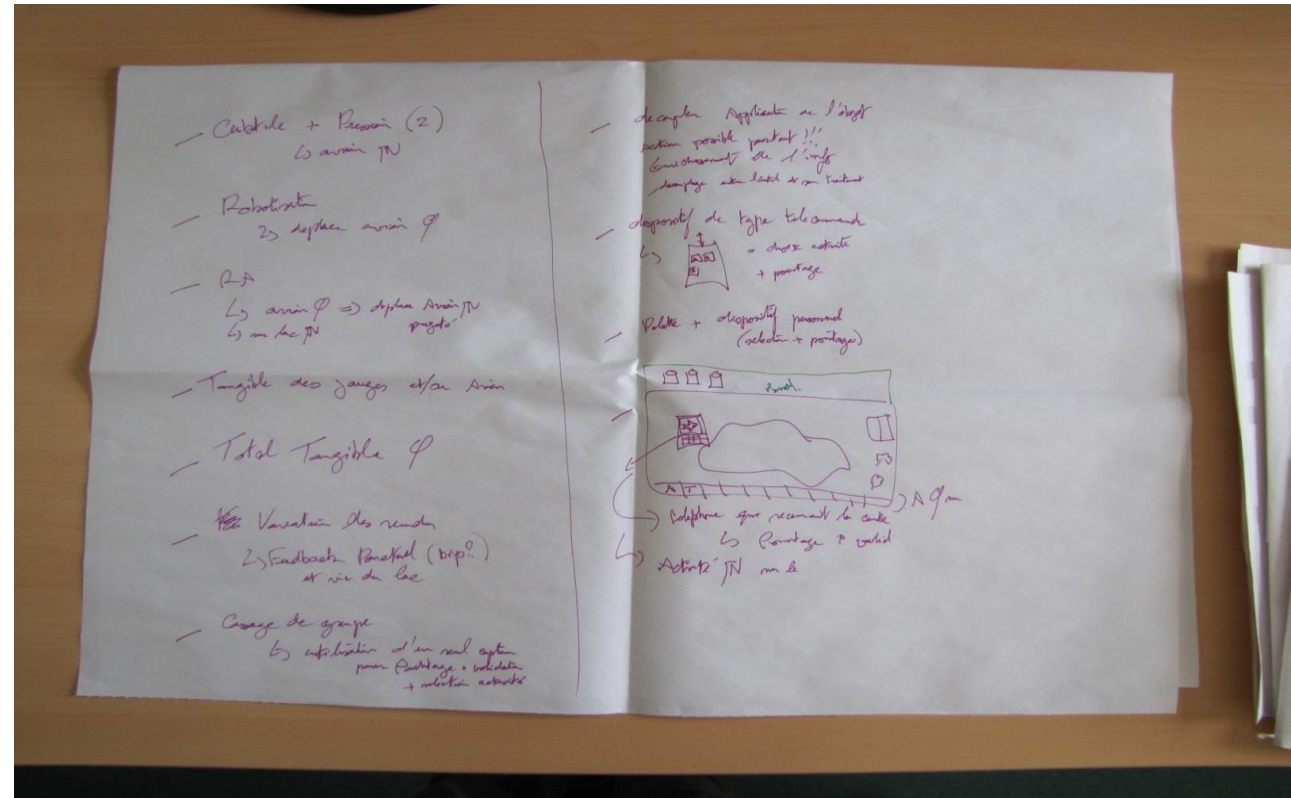 + Pression (2)
↳ avion
Robotisation
↳ deplace avion φ
RA
↳ avion φ => deplace Avion
↳ lac
Tangible des jauges et/ou Avion
Total Tangible φ
Variation des rendus
↳ Feedback Ponctuel (bip?)
et vie du lac
de groupe
↳ utilisation d'un seul capteur
pour Pointage + validation
+ selection activité
decoupler Application de l'objet
action possible partout !!!
Enrichissement de l'info
decouplage entre l'outil et son traitement
dispositif de type telecommande
↳ = choix activité
+ pointage
Palette + dispositif personnel
(selection + pointage)
A T
telephone qui reconnait la carte
↳ Pointage + valid
↳ Activité sur le